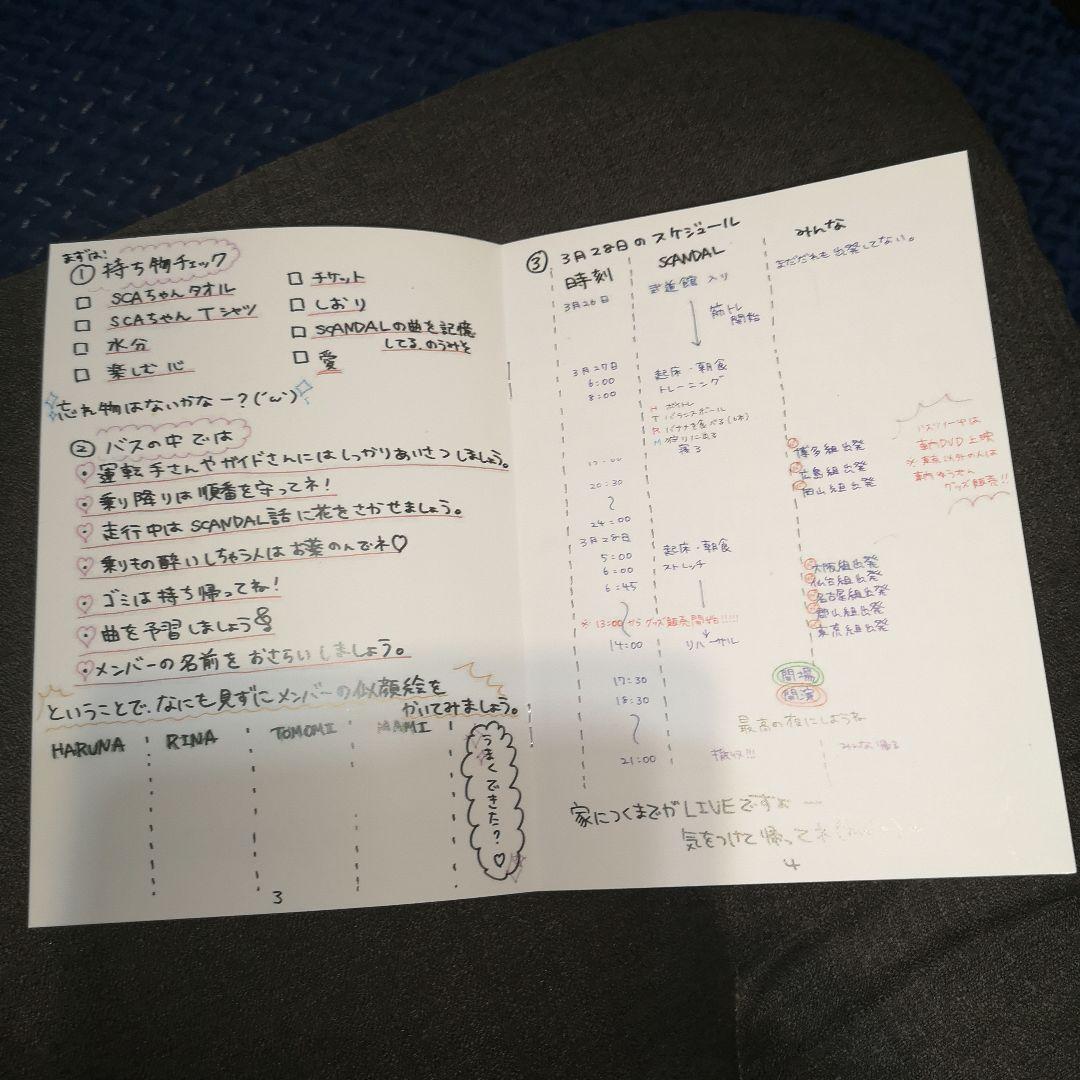 まずは!
① 持ち物チェック
□ SCAちゃんタオル
□ SCAちゃんTシャツ
□ 水分
□ 楽しむ心
□ チケット
□ しおり
□ SCANDALの曲を記憶
してる、のうみそ
□ 愛
忘れ物はないかなー?(´ω`)
② バスの中では
・運転手さんやガイドさんにはしっかりあいさつしましょう。
・乗り降りは順番を守ってネ!
・走行中はSCANDAL話に花をさかせましょう。
・乗りもの酔いしちゃう人はお薬のんでネ♡
・ゴミは持ち帰ってね!
・曲を予習しましょう
・メンバーの名前をおさらいしましょう。
ということで、なにも見ずにメンバーの似顔絵を
かいてみましょう。
HARUNA RINA TOMOMI MAMI
うまくできた?♡
3
③ 3月28日のスケジュール
時刻 SCANDAL みんな
3月26日 武道館入り まだだれも出発してない。
筋トレ
開始
3月27日
6:00 起床・朝食
8:00 トレーニング
H ボイトレ
T バランスボール
R バナナを食べる(6本)
M 狩りに出る
寝る
博多組出発
広島組出発
20:30 岡山組出発
バスツアー中は
車内DVD上映
※東京以外の人は
グッズ販売!!
24:00
3月28日
5:00 起床・朝食
6:00 ストレッチ
6:45
大阪組出発
仙台組出発
名古屋組出発
郡山組出発
東京組出発
※13:00からグッズ販売開始!!!!!
14:00 リハーサル
17:30 開場
18:30 開演
最高の夜にしようね
21:00 撤収!!! みんな帰る
家につくまでがLIVEですょ
気をつけて帰ってネ
4